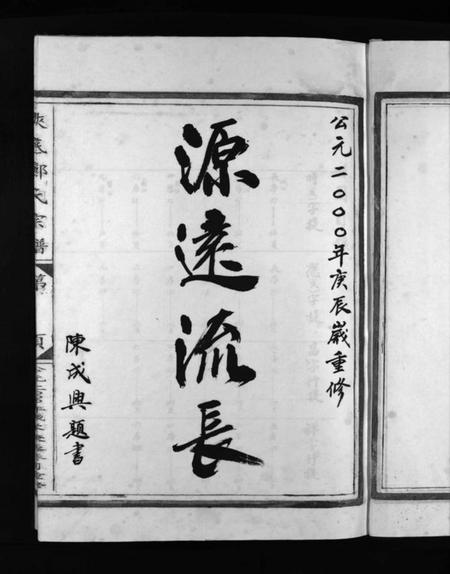 公元二〇〇〇年庚辰嵗重修
源遠流長
陳成興題書
鄭氏宗譜